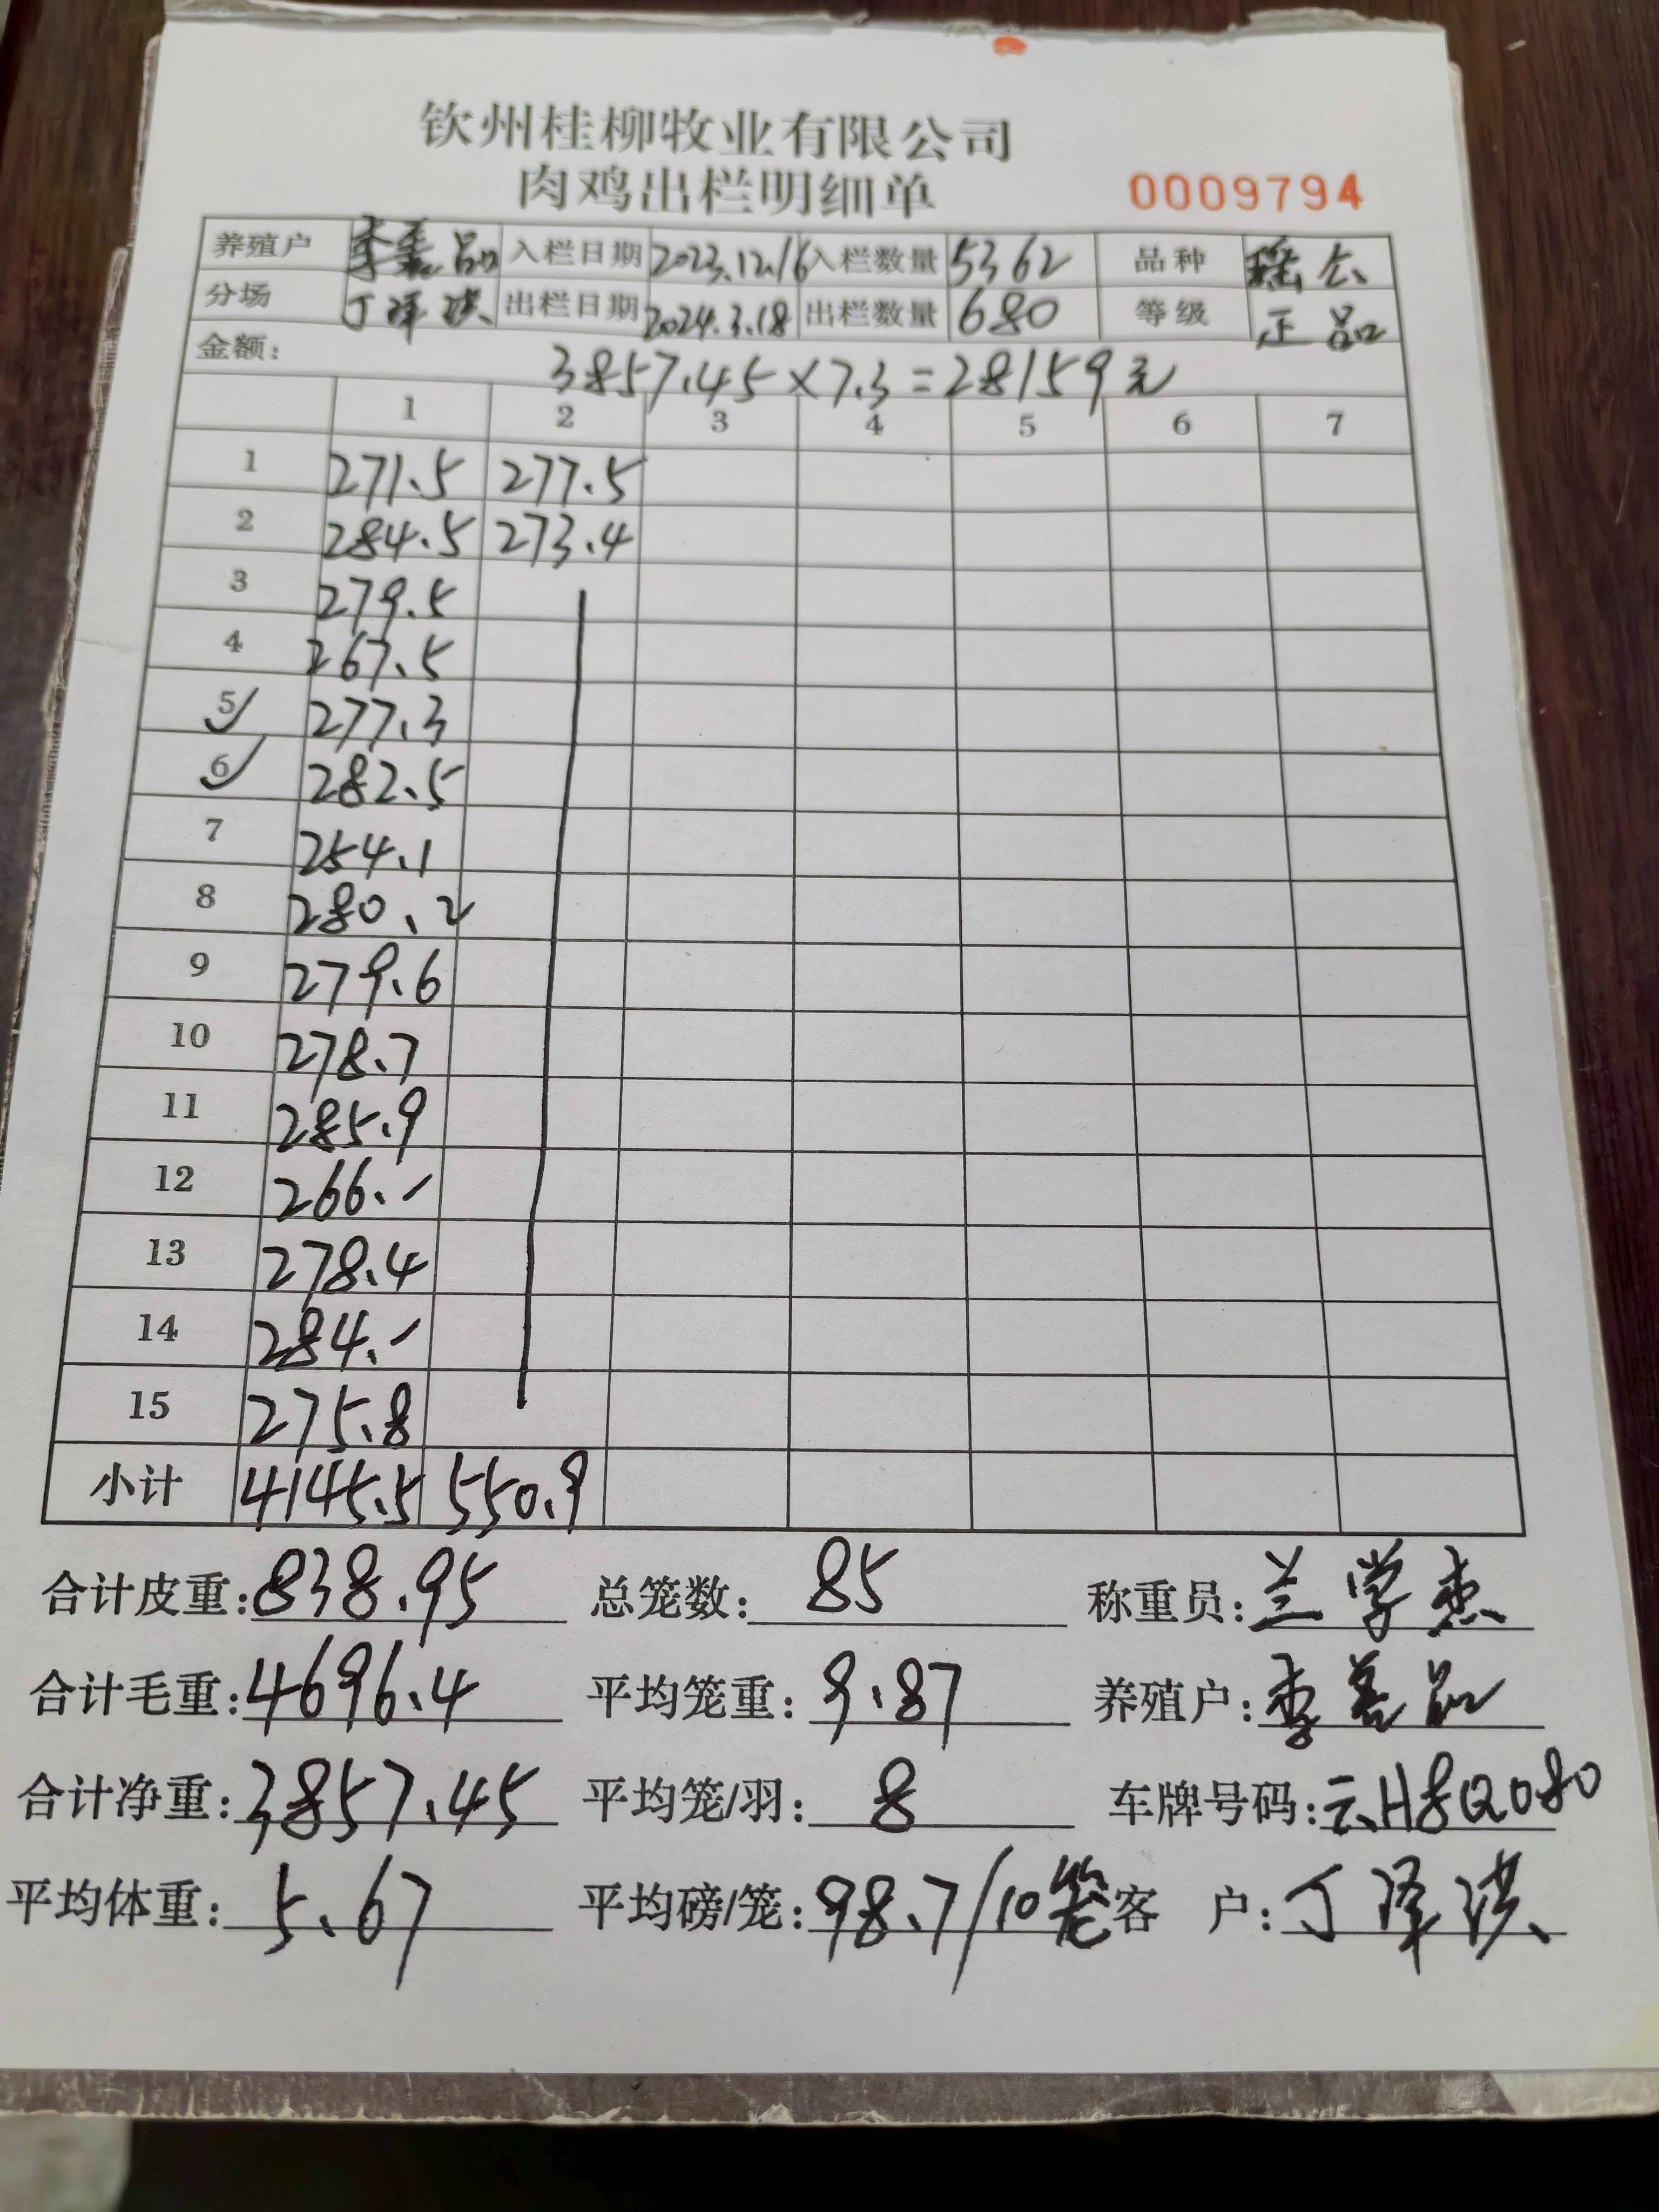 钦州桂柳牧业有限公司
肉鸡出栏明细单 0009794
养殖户 李善品 入栏日期 2023.12.16 入栏数量 5362 品种 瑶公
分场 丁泽洪 出栏日期 2024.3.18 出栏数量 680 等级 正品
金额: 3857.45×7.3=28159元
1 2 3 4 5 6 7
1 271.5 277.5
2 284.5 273.4
3 279.5
4 267.5
5 277.3
6 282.5
7 254.1
8 280.2
9 279.6
10 278.7
11 285.9
12 266.-
13 278.4
14 284.-
15 275.8
小计 4145.5 550.9
合计皮重: 838.95 总笼数: 85 称重员: 兰学杰
合计毛重: 4696.4 平均笼重: 9.87 养殖户: 李善品
合计净重: 3857.45 平均笼/羽: 8 车牌号码: 云H8Q080
平均体重: 5.67 平均磅/笼: 98.7/10笼 客 户: 丁泽洪